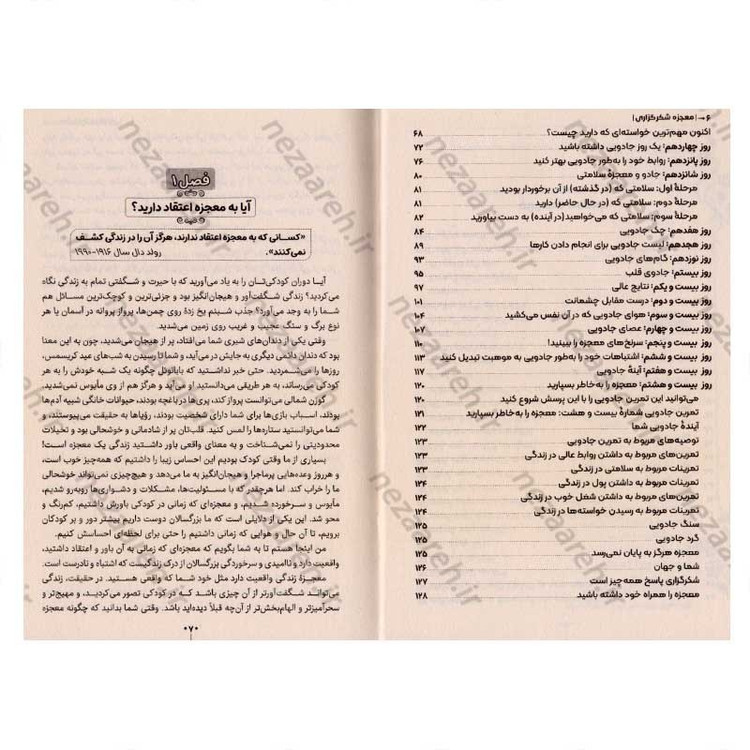 ۶ ← | معجزه شکرگزاری |
اکنون مهم‌ترین خواسته‌ای که دارید چیست؟ ۶۸
روز چهاردهم: یک روز جادویی داشته باشید ۷۲
روز پانزدهم: روابط خود را به‌طور جادویی بهتر کنید ۷۶
روز شانزدهم: جادو و معجزهٔ سلامتی ۸۰
مرحلهٔ اول: سلامتی که (در گذشته) از آن برخوردار بودید ۸۱
مرحلهٔ دوم: سلامتی که (در حال حاضر) دارید ۸۱
مرحلهٔ سوم: سلامتی که می‌خواهید(در آینده) به دست بیاورید ۸۲
روز هفدهم: چک جادویی ۸۴
روز هجدهم: لیست جادویی برای انجام دادن کارها ۸۹
روز نوزدهم: گام‌های جادویی ۹۳
روز بیستم: جادوی قلب ۹۵
روز بیست و یکم: نتایج عالی ۹۷
روز بیست و دوم: درست مقابل چشمانت ۱۰۱
روز بیست و سوم: هوای جادویی که در آن نفس می‌کشید ۱۰۴
روز بیست و چهارم: عصای جادویی ۱۰۷
روز بیست و پنجم: سرنخ‌های معجزه را ببینید! ۱۱۰
روز بیست و ششم: اشتباهات خود را به‌طور جادویی به موهبت تبدیل کنید ۱۱۳
روز بیست و هفتم: آینهٔ جادویی ۱۱۷
روز بیست و هشتم: معجزه را به‌خاطر بسپارید ۱۲۰
می‌توانید این تمرین جادویی را با این پرسش شروع کنید ۱۲۰
تمرین جادویی شمارهٔ بیست و هشت: معجزه را به‌خاطر بسپارید ۱۲۱
آیندهٔ جادویی شما ۱۲۲
توصیه‌های مربوط به تمرین جادویی ۱۲۳
تمرین‌های مربوط به داشتن روابط عالی در زندگی ۱۲۳
تمرینات مربوط به سلامتی در زندگی ۱۲۳
تمرینات مربوط به داشتن پول در زندگی ۱۲۴
تمرین‌های مربوط به داشتن شغل خوب در زندگی ۱۲۴
تمرینات مربوط به رسیدن خواسته‌ها در زندگی ۱۲۴
سنگ جادویی ۱۲۵
گرد جادویی ۱۲۵
معجزه هرگز به پایان نمی‌رسد ۱۲۵
شما و جهان ۱۲۶
شکرگزاری پاسخ همه‌چیز است ۱۲۷
معجزه را همراه خود داشته باشید ۱۲۸
فصل ۱
آیا به معجزه اعتقاد دارید؟
«کسانی که به معجزه اعتقاد ندارند، هرگز آن را در زندگی کشف
نمی‌کنند». رولد دال سال ۱۹۱۶-۱۹۹۰
آیا دوران کودکی‌تان را به یاد می‌آورید که با حیرت و شگفتی تمام به زندگی نگاه
می‌کردید؟ زندگی شگفت‌آور و هیجان‌انگیز بود و جزئی‌ترین و کوچک‌ترین مسائل هم
شما را به وجد می‌آورد؟ جذب شبنم یخ زدهٔ روی چمن‌ها، پرواز پروانه در آسمان یا هر
نوع برگ و سنگ عجیب و غریب روی زمین می‌شدید.
وقتی یکی از دندان‌های شیری شما می‌افتاد، پر از هیجان می‌شدید، چون به این معنا
بود که دندان دائمی دیگری به جایش در می‌آید، و شما تا رسیدن به شب‌های عید کریسمس،
روزها را می‌شمردید. حتی خبر نداشتید که بابانوئل چگونه یک شبه خودش را به هر
کودکی می‌رساند، به هر طریقی می‌دانستید او می‌آید و هرگز هم از وی مأیوس نمی‌شدید.
گوزن شمالی می‌توانست پرواز کند، پری‌ها در باغچه بودند، حیوانات خانگی شبیه آدم‌ها
بودند، اسباب بازی‌ها برای شما دارای شخصیت بودند، رؤیاها به حقیقت می‌پیوستند، و
شما می‌توانستید ستاره‌ها را لمس کنید. قلب‌تان پر از شادمانی و خوشحالی بود و تخیلات
محدودیتی را نمی‌شناخت و به معنای واقعی باور داشتید زندگی یک معجزه است!
بسیاری از ما وقتی کودک بودیم این احساس زیبا را داشتیم که همه‌چیز خوب است،
و هرروز وعده‌هایی پرماجرا و هیجان‌انگیز به ما می‌دهد و هیچ‌چیزی نمی‌تواند خوشحالی
ما را خراب کند. اما هرچقدر که با مسئولیت‌ها، مشکلات و دشواری‌ها روبه‌رو شدیم،
مأیوس و سرخورده شدیم، و معجزه‌ای که زمانی در کودکی باور داشتیم، کم‌رنگ و
محو شد. این یکی از دلایلی است که ما بزرگسالان دوست داریم بیشتر دور و بر کودکان
برویم، تا آن حال و هوایی که زمانی داشتیم را حتی برای لحظه‌ای احساس کنیم.
من اینجا هستم تا به شما بگویم که معجزه‌ای که زمانی به آن باور و اعتقاد داشتید،
واقعیت دارد و ناامیدی و سرخوردگی بزرگسالان از درک زندگیست که اشتباه و نادرست است.
معجزهٔ زندگی واقعیت دارد مثل خود شما که واقعی هستید. در حقیقت، زندگی
می‌تواند شگفت‌آورتر از آن چیزی باشد که در کودکی تصور می‌کردید، و مهیج‌تر و
سحرآمیزتر و الهام‌بخش‌تر از آن‌چه قبلاً دیده‌اید باشد. وقتی شما بدانید که چگونه معجزه
۰۷۰
nezaareh.ir
nezaareh.ir
nezaareh.ir
nezaareh.ir
nezaareh.ir
nezaareh.ir